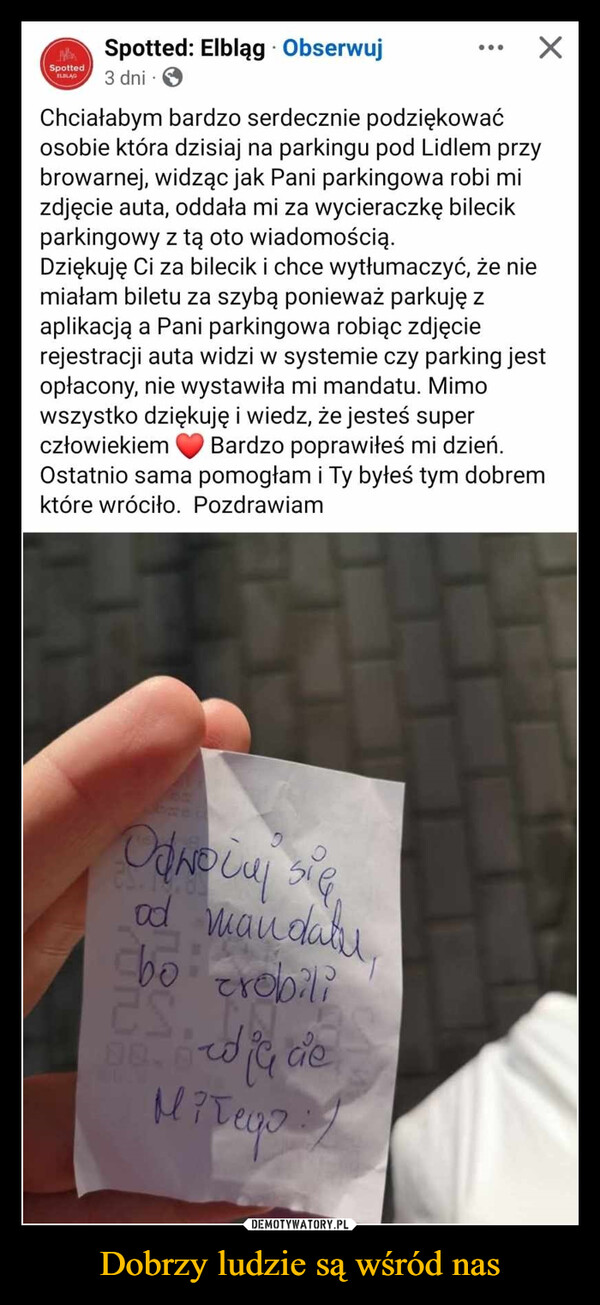 Spotted: Elbląg · Obserwuj
Spotted
ELBLĄG
3 dni ·
Chciałabym bardzo serdecznie podziękować
osobie która dzisiaj na parkingu pod Lidlem przy
browarnej, widząc jak Pani parkingowa robi mi
zdjęcie auta, oddała mi za wycieraczkę bilecik
parkingowy z tą oto wiadomością.
Dziękuję Ci za bilecik i chce wytłumaczyć, że nie
miałam biletu za szybą ponieważ parkuję z
aplikacją a Pani parkingowa robiąc zdjęcie
rejestracji auta widzi w systemie czy parking jest
opłacony, nie wystawiła mi mandatu. Mimo
wszystko dziękuję i wiedz, że jesteś super
człowiekiem ❤️ Bardzo poprawiłeś mi dzień.
Ostatnio sama pomogłam i Ty byłeś tym dobrem
które wróciło. Pozdrawiam
Odwołaj się
od mandatu,
bo zrobili
zdjęcie
Miłego :)
DEMOTYWATORY.PL
Dobrzy ludzie są wśród nas